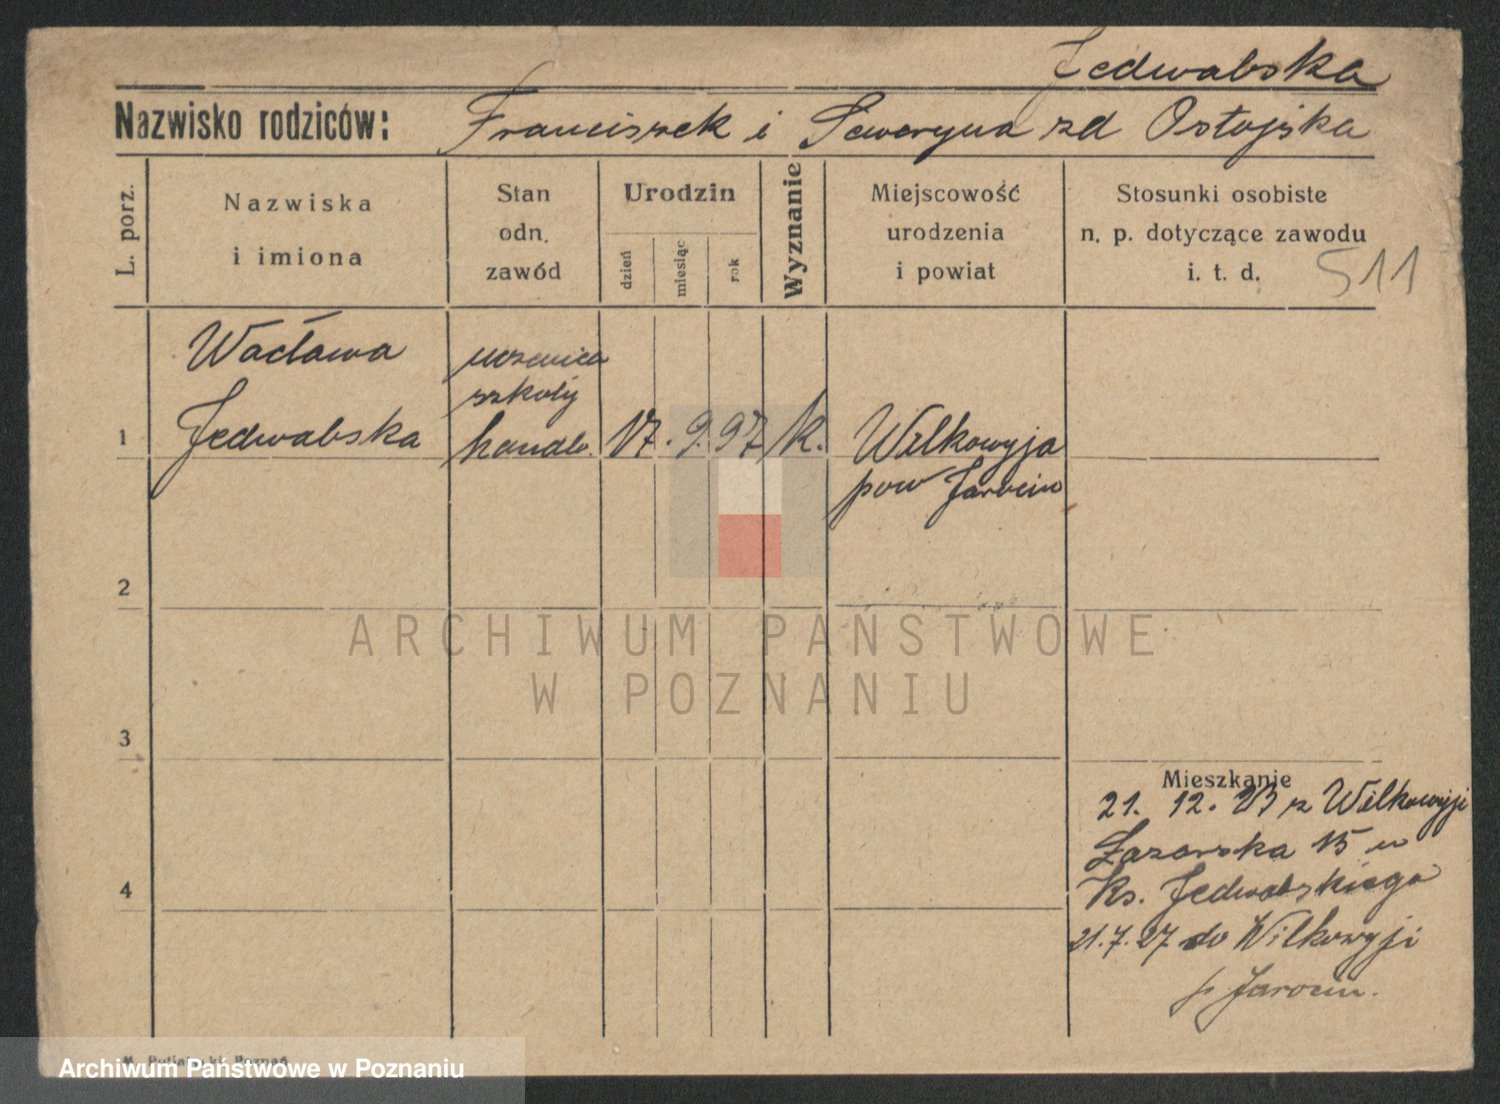 Jedwabska
Nazwisko rodziców: Franciszek i Seweryna zd Ostojska
L. porz.
Nazwiska
i imiona
Stan
odn.
zawód
Urodzin
dzień
miesiąc
rok
Wyznanie
Miejscowość
urodzenia
i powiat
Stosunki osobiste
n. p. dotyczące zawodu
i. t. d.
511
1
Wacława
Jedwabska
uczenica
szkoły
handlo.
17. 9. 97
k.
Wilkowyja
pow Jarocin
2
3
4
ARCHIWUM PAŃSTWOWE
W POZNANIU
Mieszkanie
21. 12. 23 z Wilkowyji
Łazarska 15 u
Ks. Jedwabskiego
21.7.27 do Wilkowyji
p. Jarocin.
Poznań
Archiwum Państwowe w Poznaniu